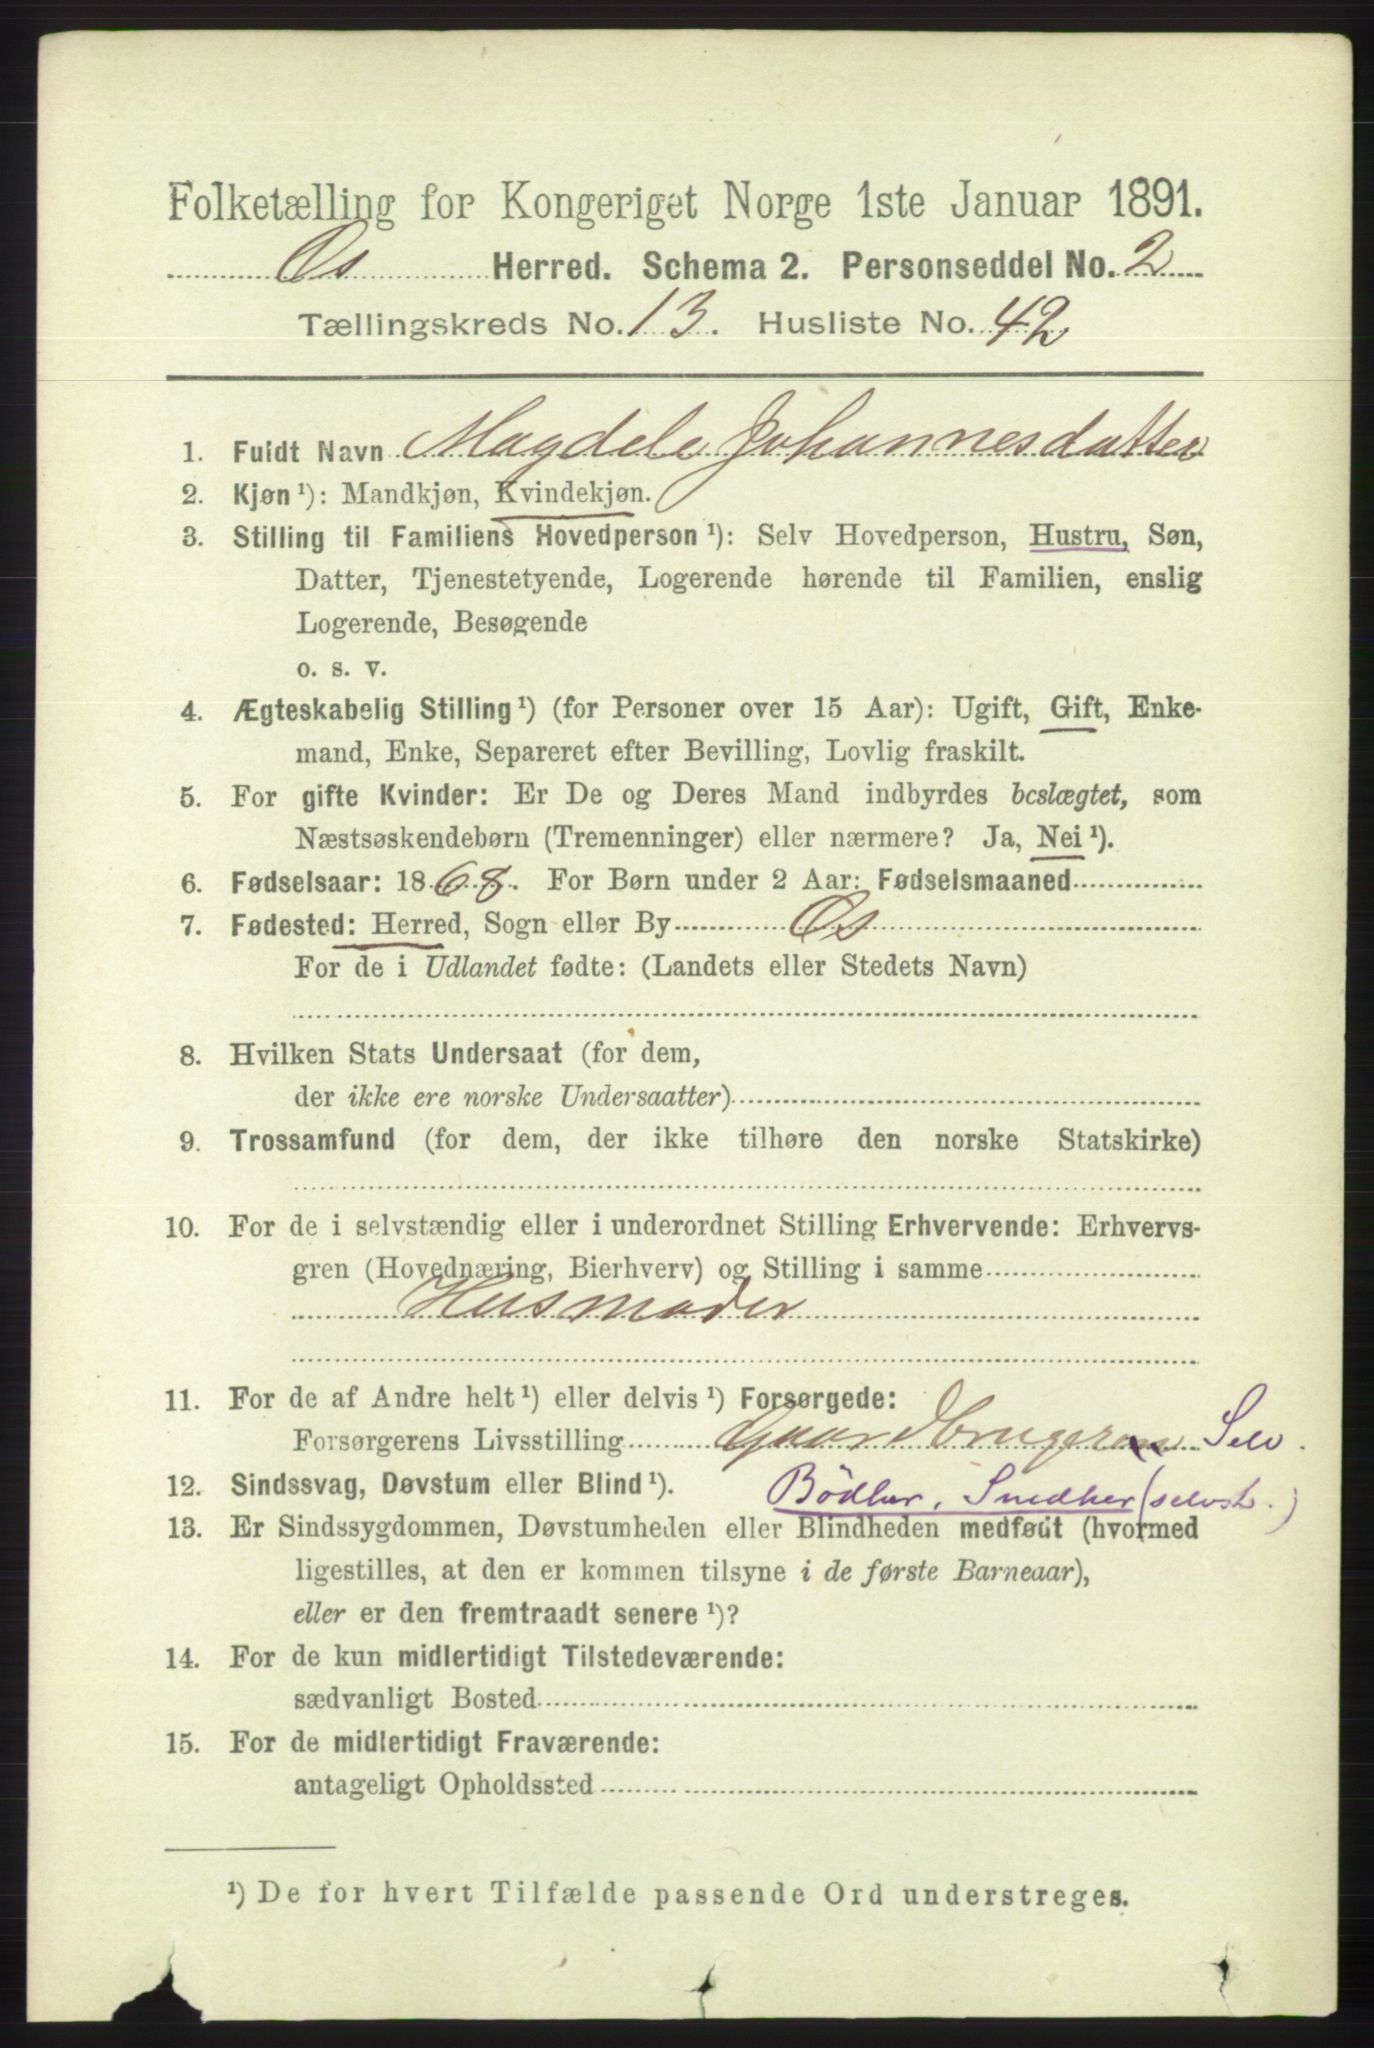 Folketælling for Kongeriget Norge 1ste Januar 1891.
Os Herred. Schema 2. Personseddel No. 2
Tællingskreds No. 13. Husliste No. 42
1. Fuldt Navn Magdele Johannesdatter
2. Kjøn ¹): Mandkjøn, Kvindekjøn.
3. Stilling til Familiens Hovedperson ¹): Selv Hovedperson, Hustru, Søn,
Datter, Tjenestetyende, Logerende hørende til Familien, enslig
Logerende, Besøgende
o. s. v.
4. Ægteskabelig Stilling ¹) (for Personer over 15 Aar): Ugift, Gift, Enke-
mand, Enke, Separeret efter Bevilling, Lovlig fraskilt.
5. For gifte Kvinder: Er De og Deres Mand indbyrdes beslægtet, som
Næstsøskendebørn (Tremenninger) eller nærmere? Ja, Nei ¹).
6. Fødselsaar: 1868. For Børn under 2 Aar: Fødselsmaaned
7. Fødested: Herred, Sogn eller By Os
For de i Udlandet fødte: (Landets eller Stedets Navn)
8. Hvilken Stats Undersaat (for dem,
der ikke ere norske Undersaatter)
9. Trossamfund (for dem, der ikke tilhøre den norske Statskirke)
10. For de i selvstændig eller i underordnet Stilling Erhvervende: Erhvervs-
gren (Hovednæring, Bierhverv) og Stilling i samme
Husmoder
11. For de af Andre helt ¹) eller delvis ¹) Forsørgede:
Forsørgerens Livsstilling Gaardbrugeren Selv.
12. Sindssvag, Døvstum eller Blind ¹). Bödker, Snedker (selvst.)
13. Er Sindssygdommen, Døvstumheden eller Blindheden medfødt (hvormed
ligestilles, at den er kommen tilsyne i de første Barneaar),
eller er den fremtraadt senere ¹)?
14. For de kun midlertidigt Tilstedeværende:
sædvanligt Bosted
15. For de midlertidigt Fraværende:
antageligt Opholdssted
¹) De for hvert Tilfælde passende Ord understreges.